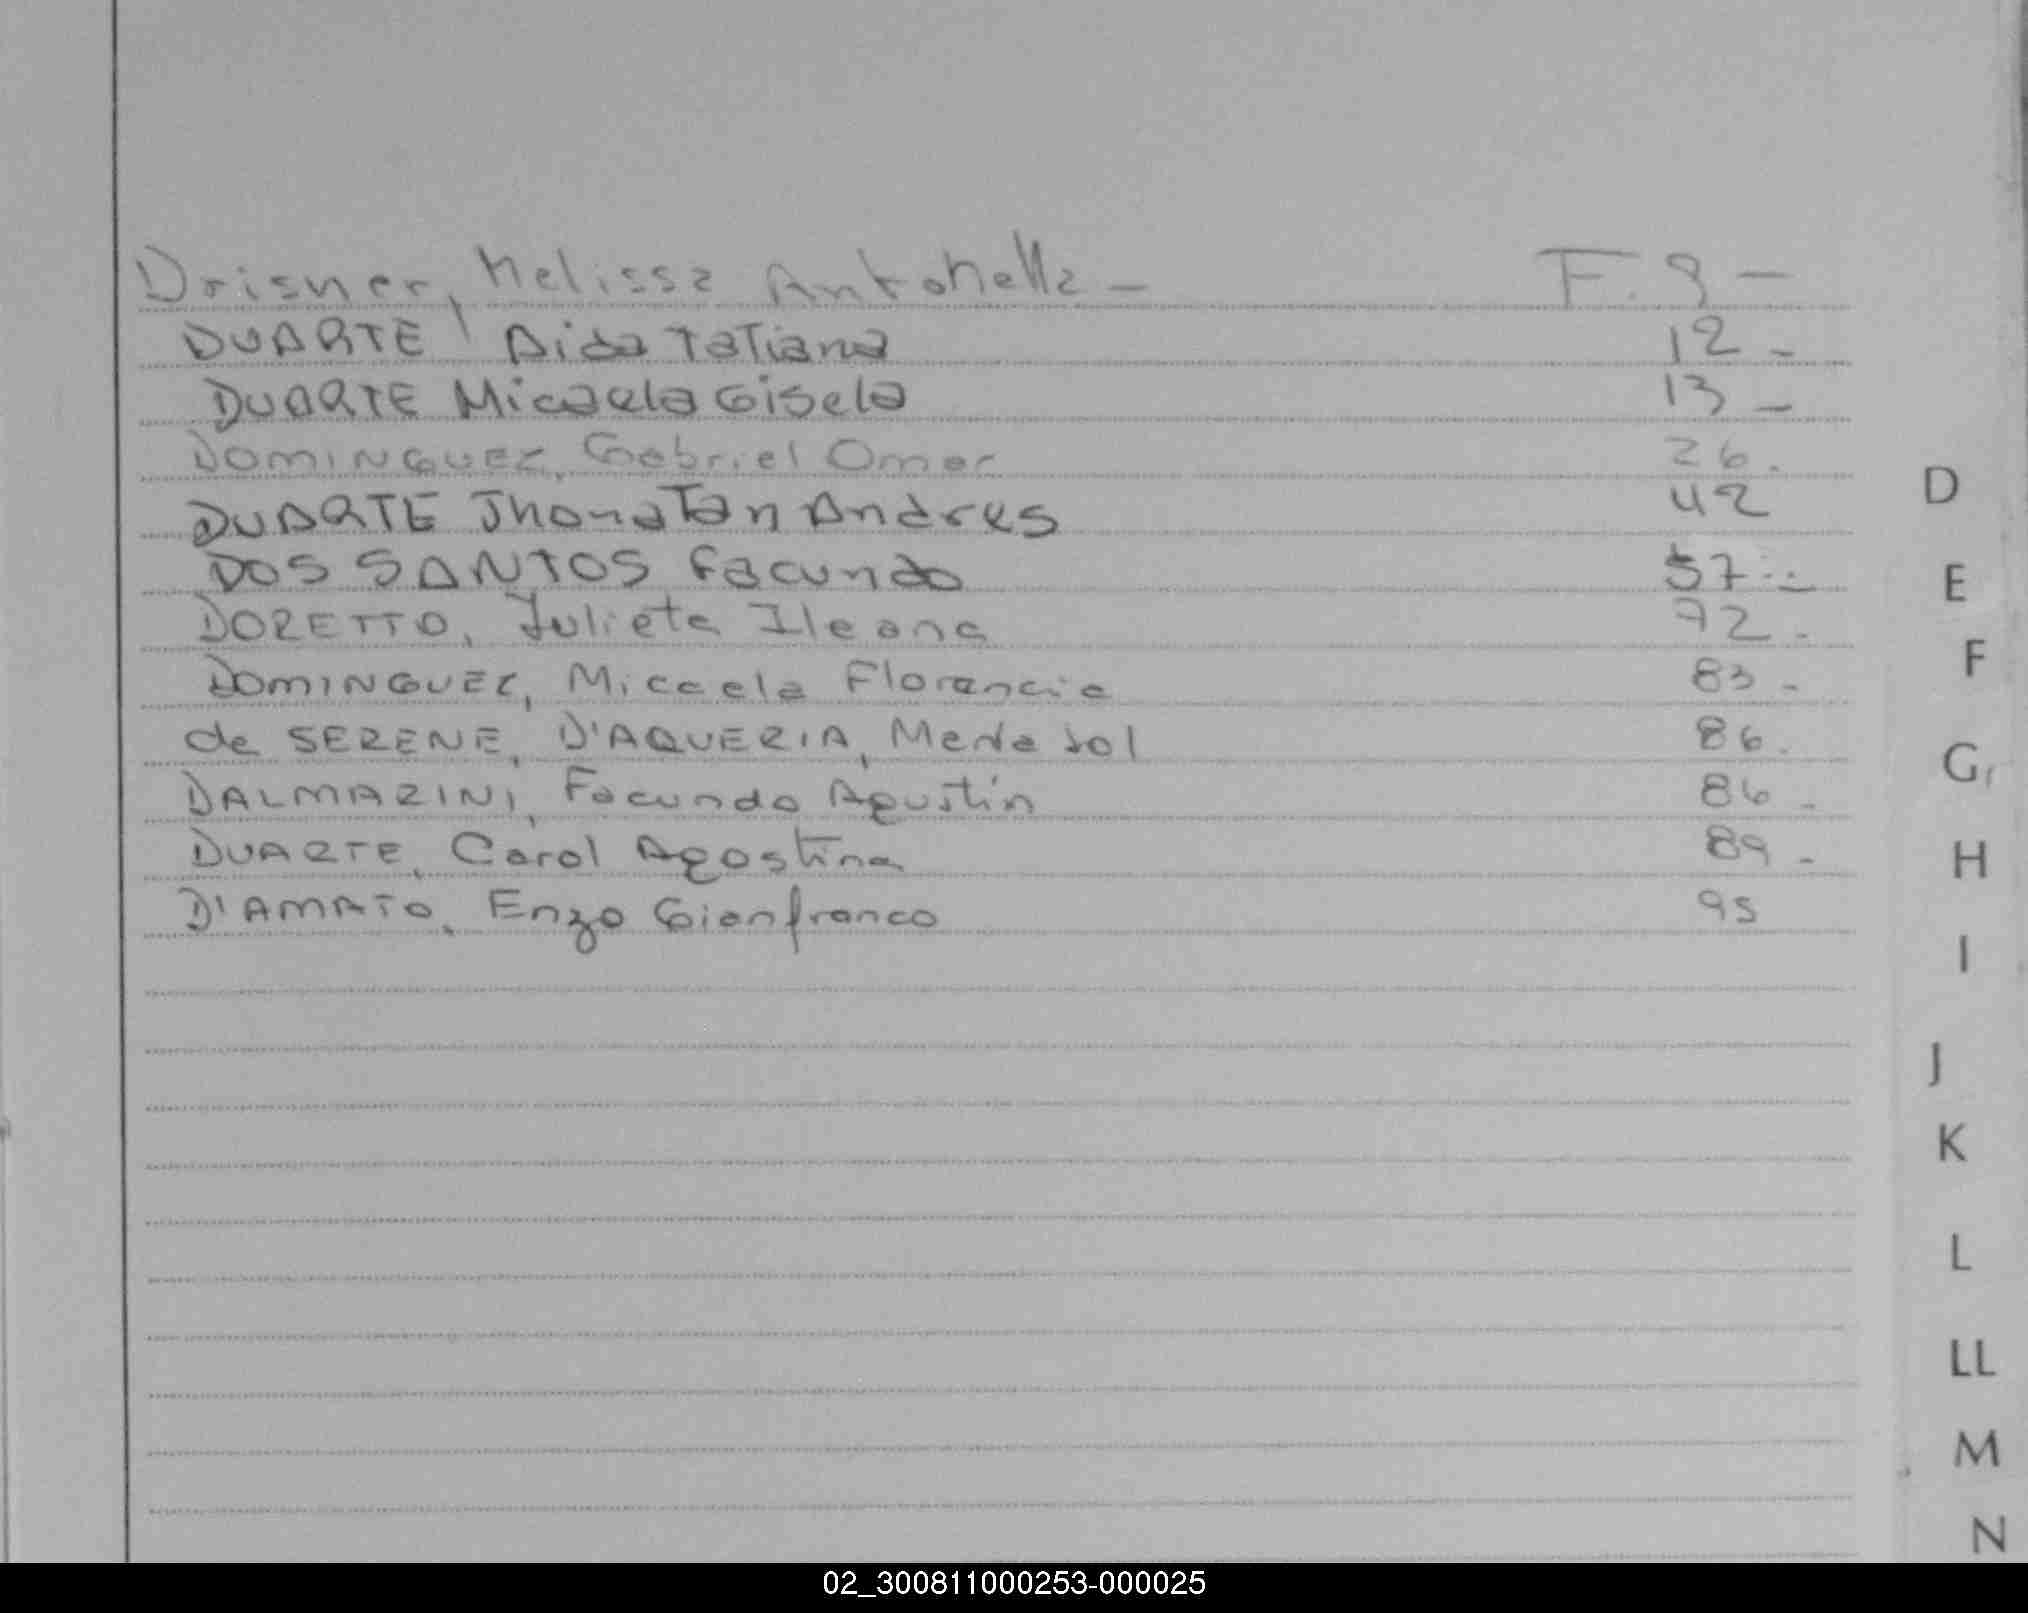 Drisner, Melissa Antonella - F. 9 -
DUARTE Aida Tatiana 12 -
DUARTE Micaela Gisela 13 -
DOMINGUEZ, Gabriel Omar 26.
DUARTE Jhonatan Andres 42
DOS SANTOS Facundo 57 -
DORETTO, Julieta Ileana 72 -
DOMINGUEZ, Micaela Florencia 83 -
de SERENE, D'AQUERIA, Merle Sol 86.
DALMAZINI, Facundo Agustín 86 -
DUARTE, Carol Agostina 89 -
D'AMATO, Enzo Gianfranco 95
D
E
F
G
H
I
J
K
L
LL
M
N
02_300811000253-000025